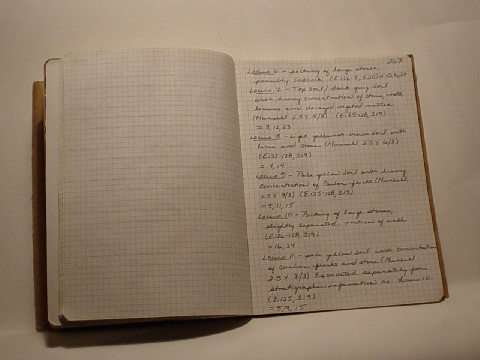 257
Locus 6 - packing of large stones,
possibly bedrock, (E126-7, S20)
Locus 7 - Top soil / dark grey soil
with heavy concentration of stone, roots
and decayed vegetal matter
(Munsell 2.5Y 5/3) (E125-128, S19)
= 3, 12, 23
Locus 8 - Light yellowish brown soil with
and stone (Munsell 2.5Y 6/3)
(E125-128, S19)
14
Locus 9 - Pale yellow soil with heavy
concentration of Carbon flecks (Munsell
2.5Y 7/3) (E125-128, S19)
= 5, 11, 15
Locus 10 - Packing of large stones,
slightly separated, portion of wall
(E126-128, S19)
= 16, 24
Locus 11 - pale yellow soil with concentration
of Carbon flecks and stone (Munsell
2.5Y 7/3) Excavated separately for
stratigraphic information re. Locus 10.
(E125, S19)
= 5, 9, 15